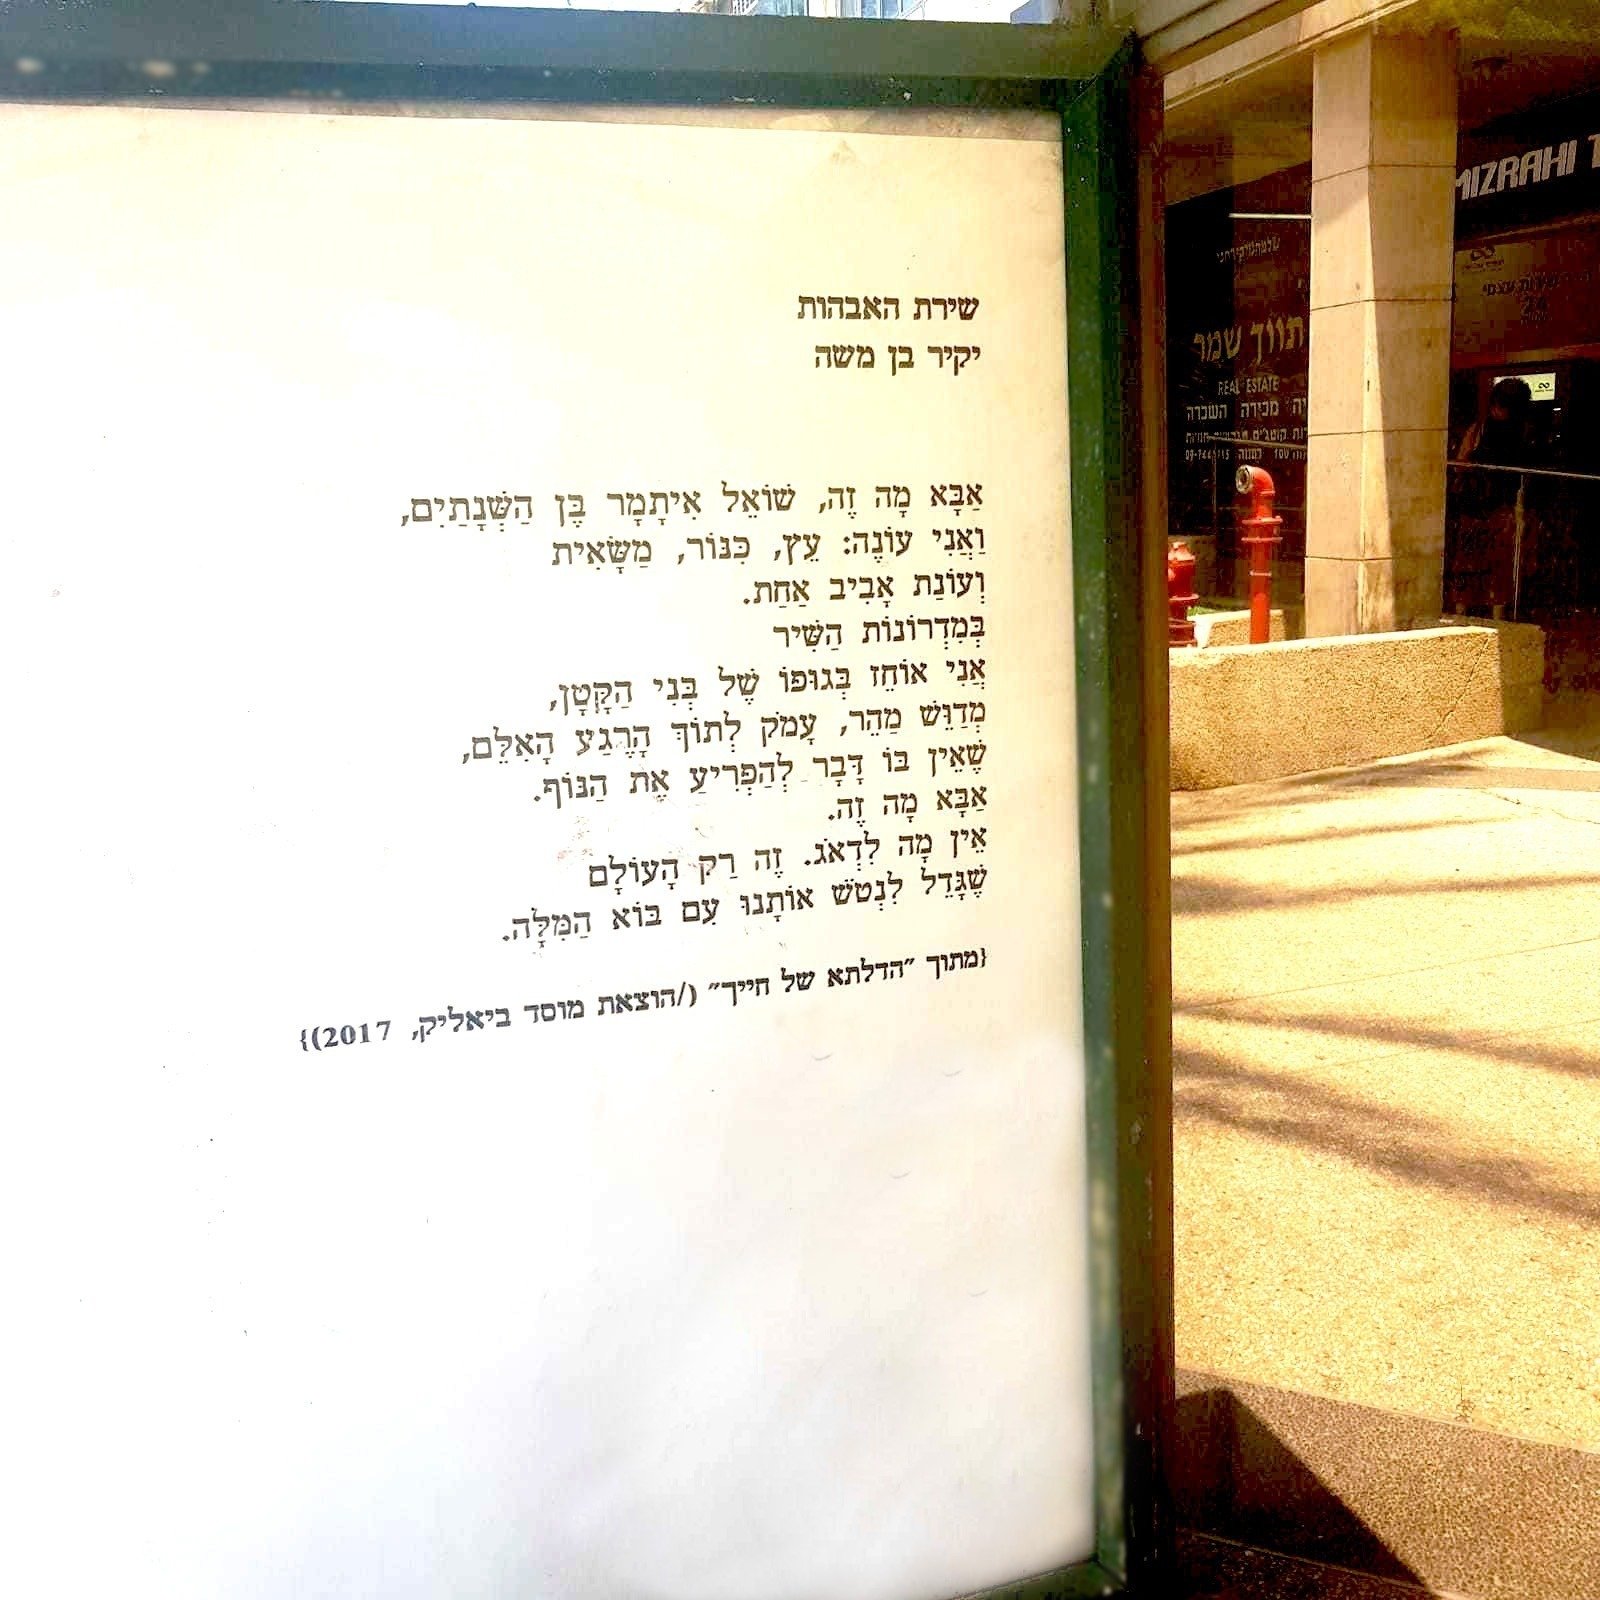 שירת האבהות
יקיר בן משה
אַבָּא מָה זֶה, שׁוֹאֵל אִיתָמָר בֶּן הַשְּׁנָתַיִם,
וַאֲנִי עוֹנֶה: עֵץ, כִּנּוֹר, מַשָּׂאִית
וְעוֹנַת אָבִיב אַחַת.
בְּמִדְרוֹנוֹת הַשִּׁיר
אֲנִי אוֹחֵז בְּגוּפוֹ שֶׁל בְּנִי הַקָּטָן,
מְדַוֵּשׁ מַהֵר, עָמֹק לְתוֹךְ הָרֶגַע הָאִלֵּם,
שֶׁאֵין בּוֹ דָּבָר לְהַפְרִיעַ אֶת הַנּוֹף.
אַבָּא מָה זֶה.
אֵין מָה לִדְאֹג. זֶה רַק הָעוֹלָם
שֶׁגָּדֵל לִנְטֹשׁ אוֹתָנוּ עִם בּוֹא הַמִּלָּה.
{מתוך "הדלתא של חייך" (/הוצאת מוסד ביאליק, 2017)}
MIZRAHI
תווך שמר
REAL ESTATE
מכירה השכרה